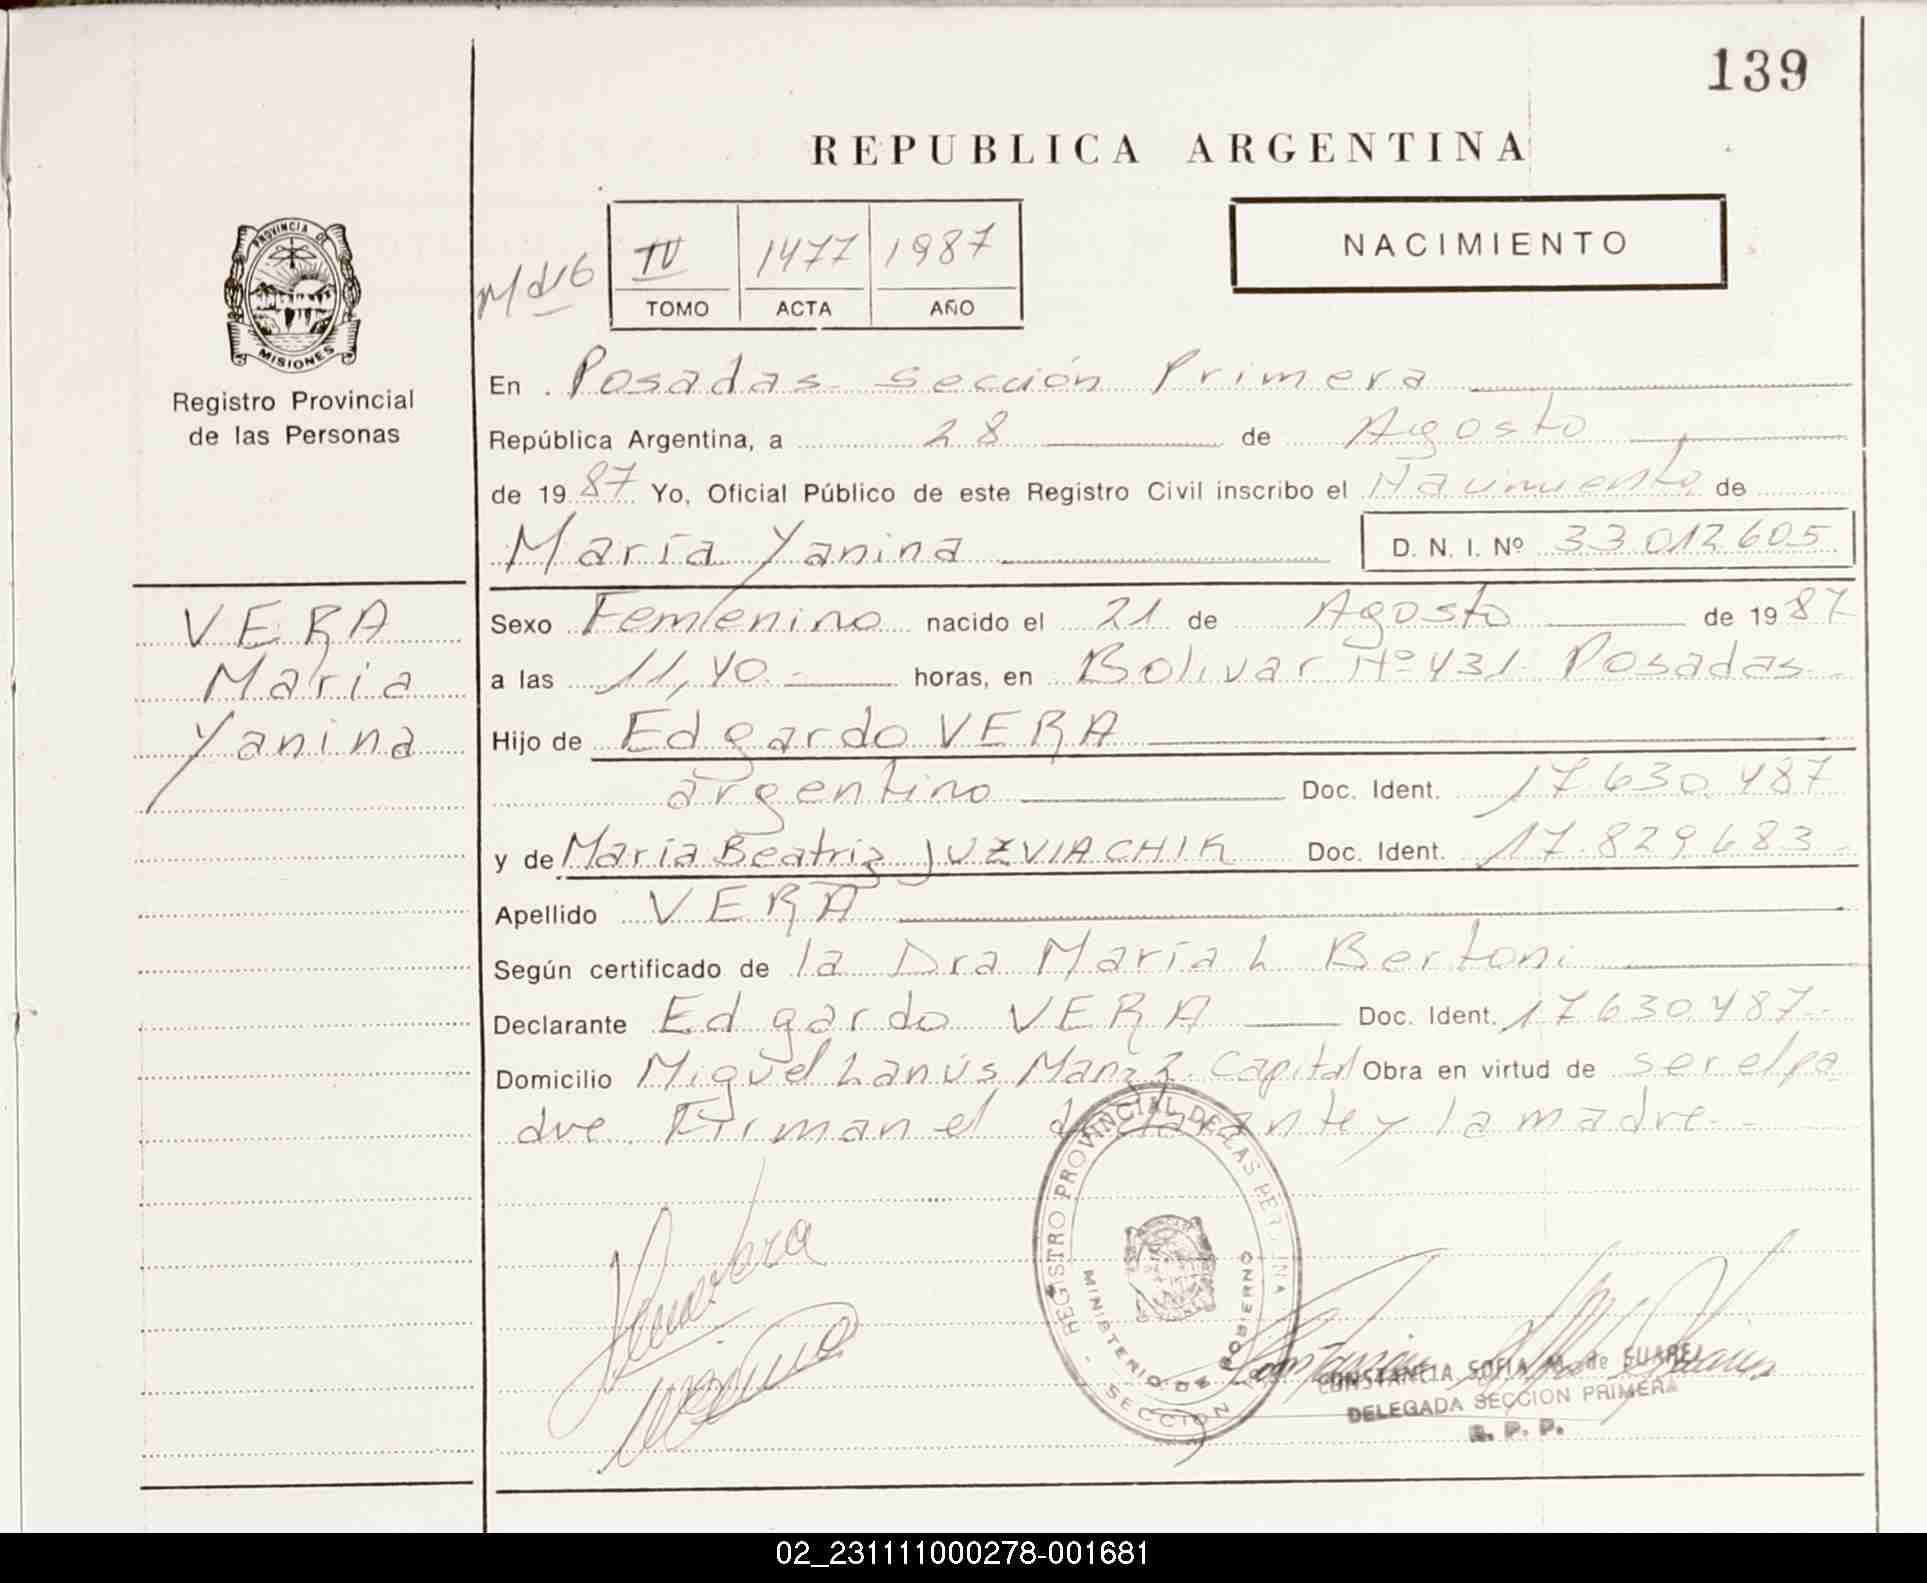 139
REPUBLICA ARGENTINA
IV 1477 1987
TOMO ACTA AÑO
NACIMIENTO
PROVINCIA DE
MISIONES
Registro Provincial
de las Personas
En Posadas sección Primera
República Argentina, a 28 de Agosto
de 1987 Yo, Oficial Público de este Registro Civil inscribo el Nacimiento de
María Yanina D. N. I. Nº 33012605
VERA
María
Yanina
Sexo Femenino nacido el 21 de Agosto de 1987
a las 11,40 horas, en Bolivar Nº 431 Posadas
Hijo de Edgardo VERA
argentino Doc. Ident. 17.630.487
y de María Beatriz JUZVIACHIK Doc. Ident. 17.829.683
Apellido VERA
Según certificado de la Dra María L Bertoni
Declarante Edgardo VERA Doc. Ident. 17630487
Domicilio Miguel Lanús Manz 2. Capital Obra en virtud de ser el pa
dre. Firman el declarante y la madre
REGISTRO PROVINCIAL DE LAS
MINISTERIO DE GOBIERNO
SECCION
CONSTANCIA SOFIA M. de SUAREZ
DELEGADA SECCION PRIMERA
R. P. P.
02_231111000278-001681